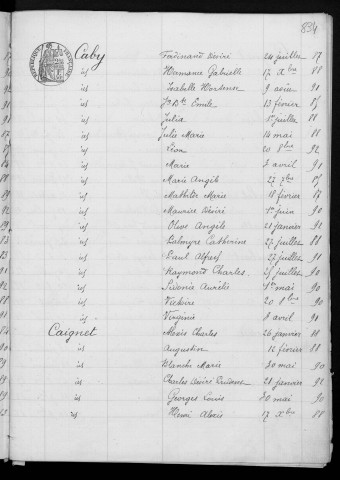 834
Caby Ferdinand Désiré 24 juillet 87
id Hermance Gabrielle 17 Xbre 88
id Isabelle Hortense 9 90
id Jn Bte Emile 13 février 85
id Julia 1er juillet 88
id Julie Marie 14 mai 88
id Léon 20 8bre 92
id Marie 3 avril 90
id Marie Angèle 27 7bre 85
id Mathilde Marie 18 février 87
id Maurice Désiré 1er juin 90
id Olive Angèle 21 janvier 91
id Palmyre Catherine 27 juillet 88
id Paul Alfred 27 juillet 91
id Raymond Charles 25 juillet 90
id Sidonie Aurélie 1er mai 90
id Victoire 20 8bre 90
id Virginie 8 avril 91
Caignet Alexis Charles 26 janvier 88
id Augustin 12 février 88
id Blanche Marie 30 mai 90
id Charles Désiré 21 janvier 91
id Georges Louis 30 mai 90
id Henri Alexis 17 Xbre 88